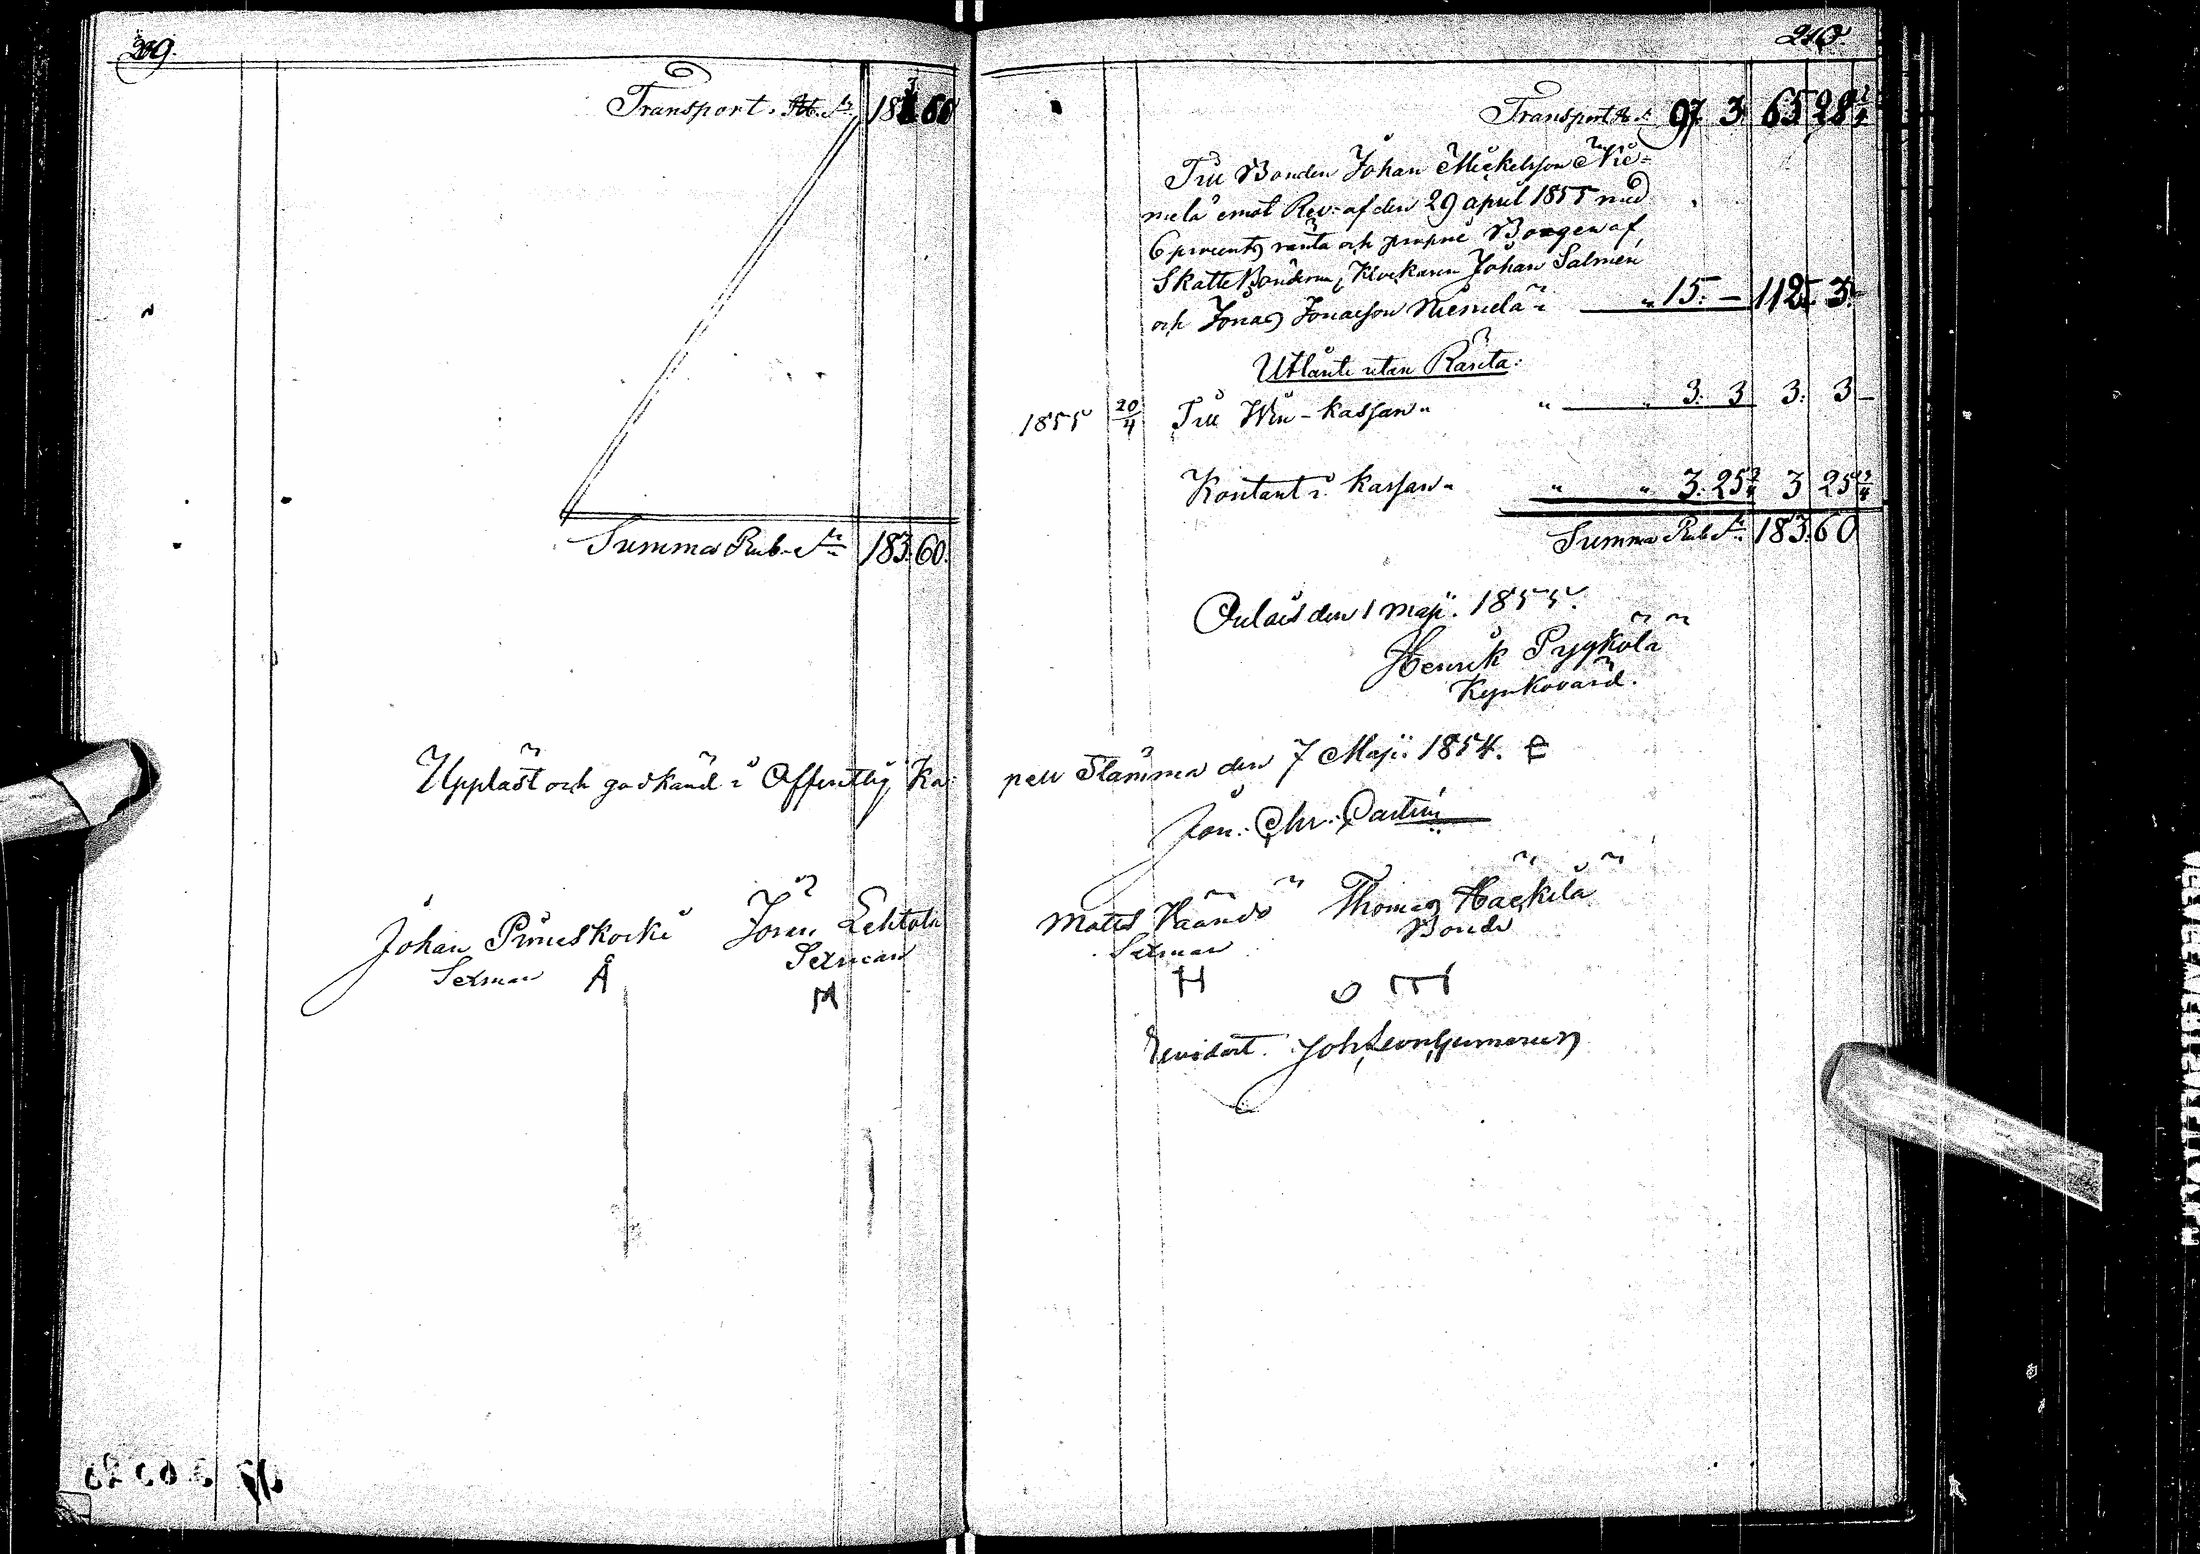 239.
Transport. Rb. Sr. 183 60
Summa Rub. Sr 183. 60.
Uppläst och godkänd i Offentlig Ka-
Johan Piuneskoski Jonn Lehtola
Sexman Sexman
Å M
240.
Transport Rb S. 97. 3. 65. 28 3/4
Till Bonden Johan Mickelsson Nie-
melä emot Rev. af den 29 april 1855 med
6 procents ränta och proprie Borgen af
Skatte Bönderne, Klockaren Johan Salmén
och Jonas Jonasson Niemelä " 15. — 112. 3. —
Utlånte utan Ränta:
1855 20/4 Till Win-kassan " " " 3. 3 3. 3 —
Kontant i kassan " " " 3. 25 3/4 3 25 3/4
Summa Rub Sr. 183. 60
Oulais den 1 Maji. 1855.
Henrik Pyykölä
Kyrkovärd.
pell Stämma den 7 Maji. 1854.
Jon. Chr.
Matts Kääntö Thomas Häkkilä
Sexman Bonde
H
Revidert. Joh Leonh Gumerus